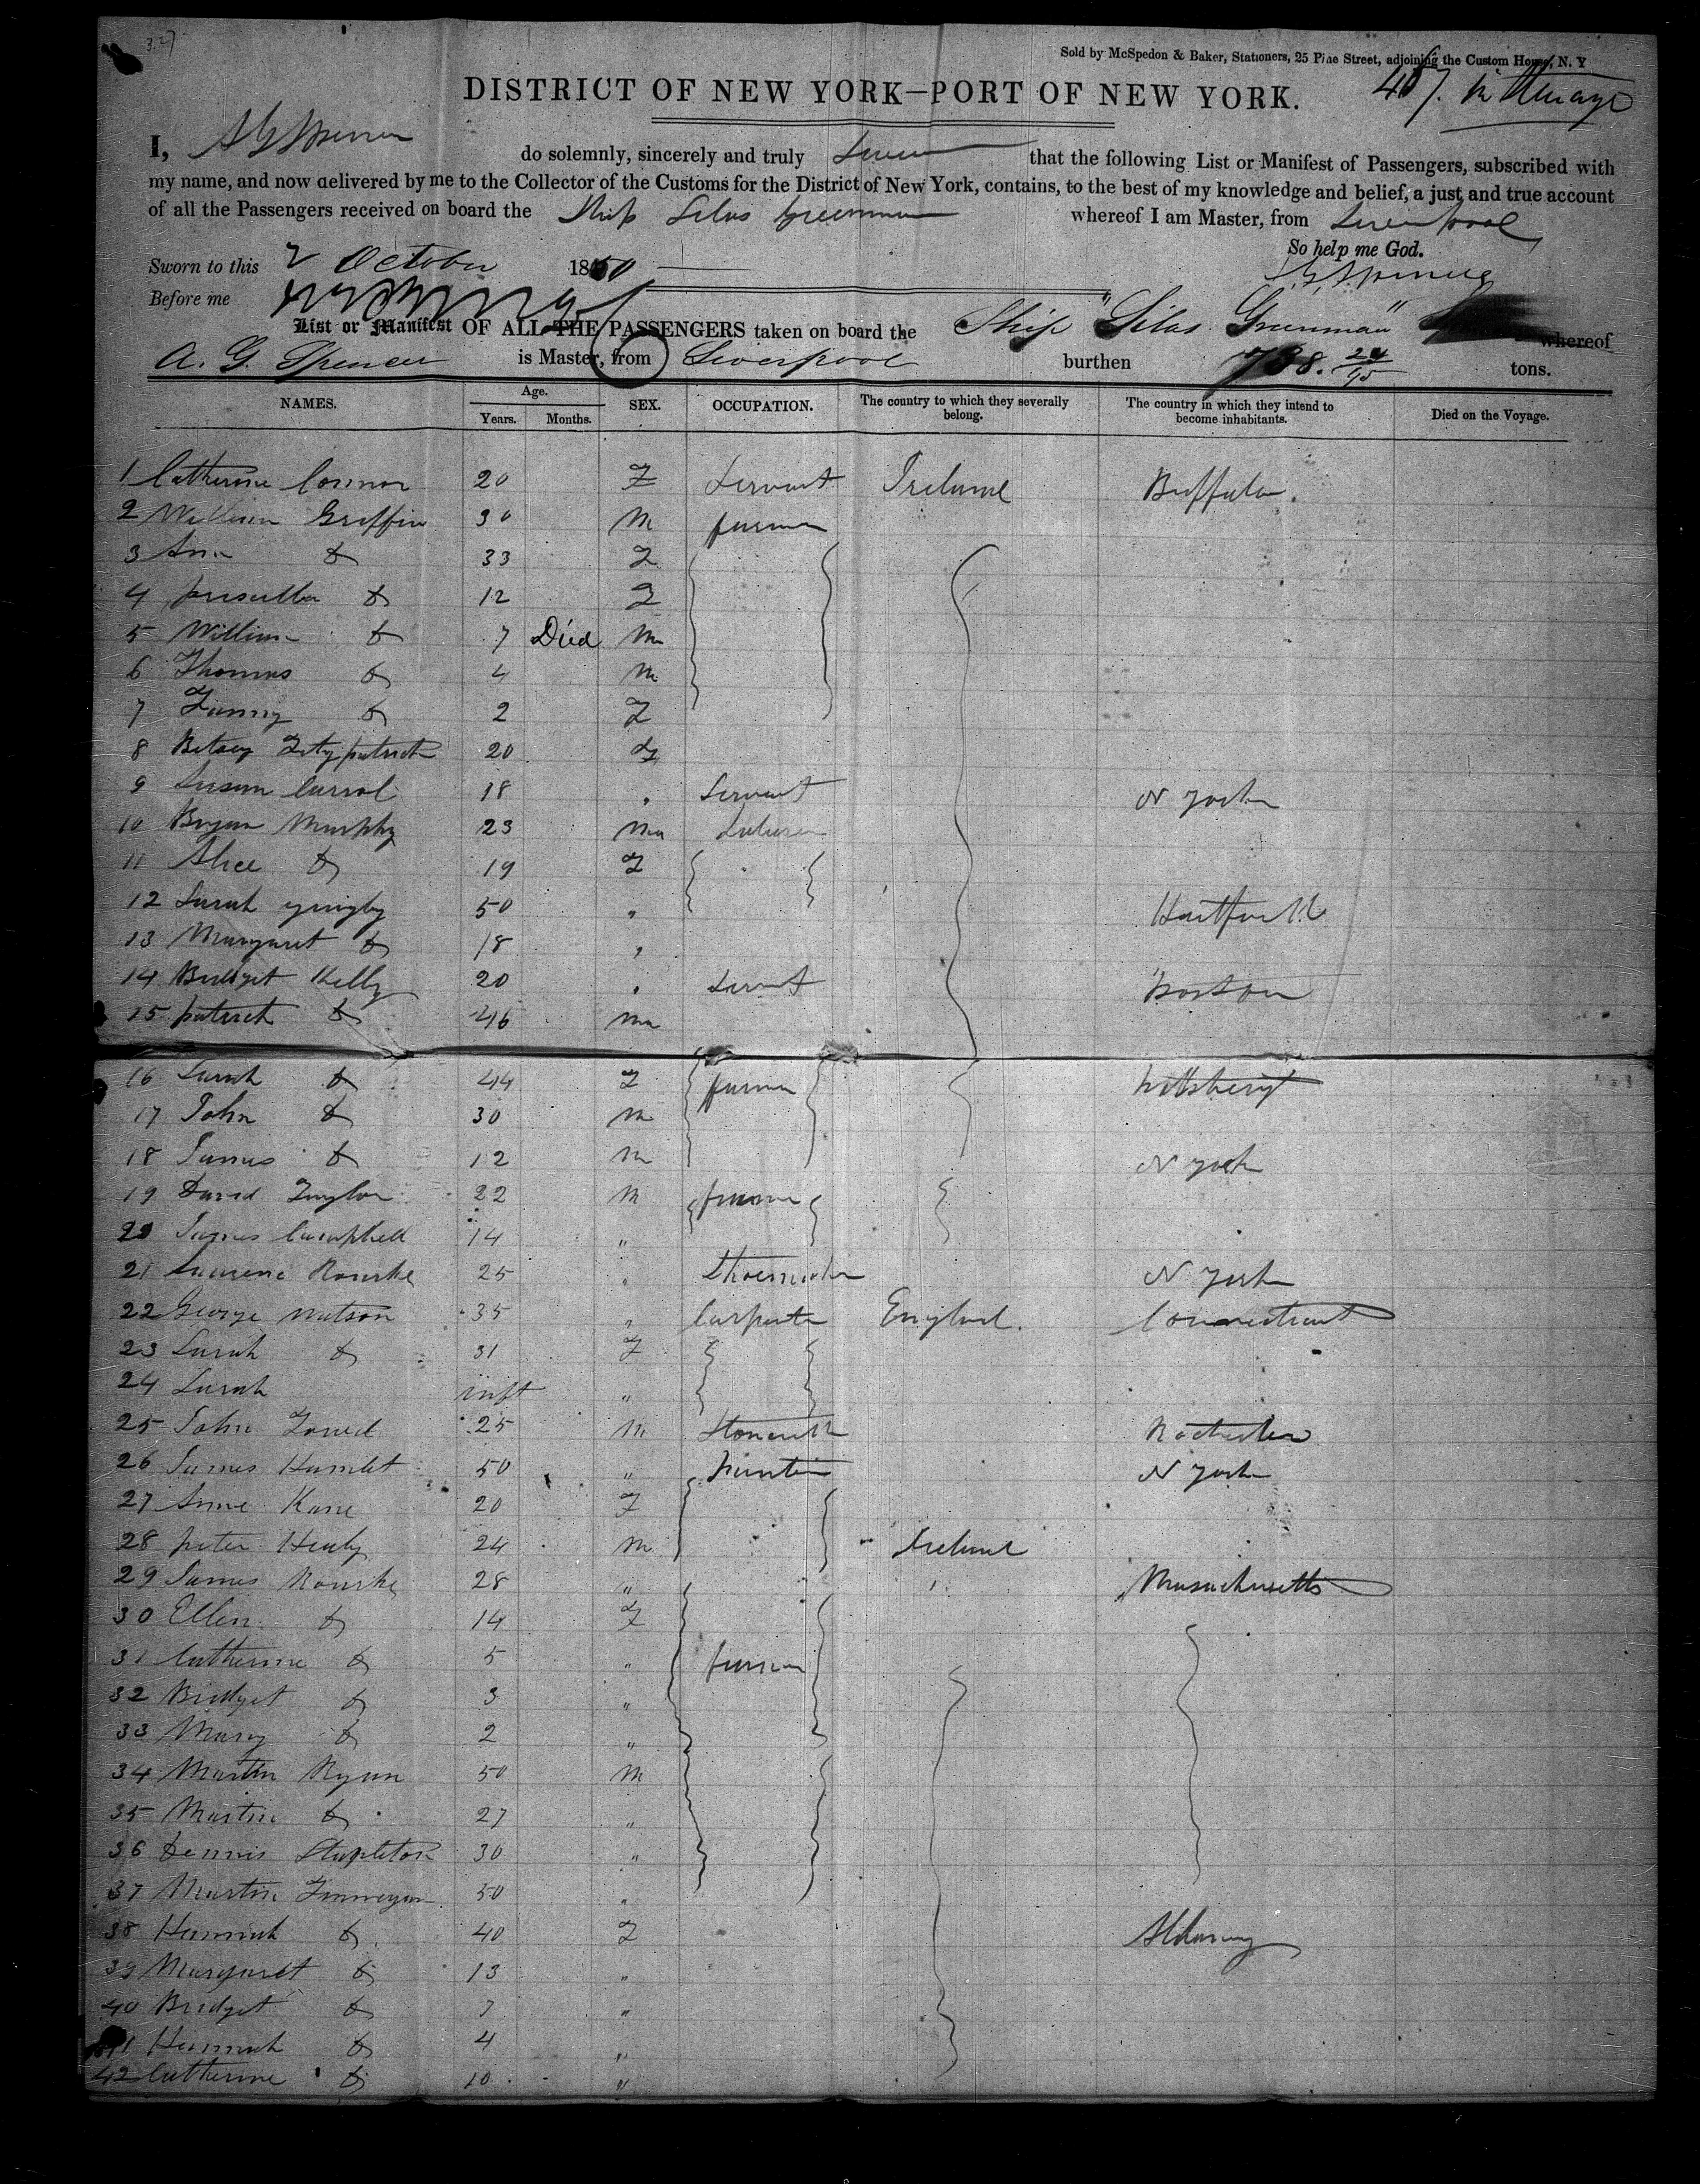 327
Sold by McSpedon & Baker, Stationers, 25 Pine Street, adjoining the Custom House, N. Y
DISTRICT OF NEW YORK—PORT OF NEW YORK.
I, A G Spencer do solemnly, sincerely and truly Swear that the following List or Manifest of Passengers, subscribed with
my name, and now delivered by me to the Collector of the Customs for the District of New York, contains, to the best of my knowledge and belief, a just and true account
of all the Passengers received on board the Ship Silas Greenman whereof I am Master, from Liverpool
So help me God.
Sworn to this 2 October 1850
A G Spencer
Before me
List or Manifest OF ALL THE PASSENGERS taken on board the Ship "Silas Greenman" whereof
A. G. Spencer is Master, from Liverpool burthen 738. 24/95 tons.
NAMES. Age. Years. Months. SEX. OCCUPATION. The country to which they severally belong. The country in which they intend to become inhabitants. Died on the Voyage.
1 Catherine Connor 20 F Servant Ireland Buffalo.
2 William Griffin 30 M farmer
3 Ann Do 33 F
4 priscilla Do 12 F
5 William Do 7 Died M
6 Thomas Do 4 M
7 Fanny Do 2 F
8 Betsey Fitzpatrick 20 F
9 Susan Carrol 18 " Servant N York
10 Bryan Murphy 23 M Laborer
11 Alice Do 19 F
12 Sarah 50 " Hartford
13 Margaret Do 18 "
14 Bridget Kelly 20 " Servant Boston
15 patrick Do 46 M
16 Sarah Do 44 F farmer pittsburgh
17 John Do 30 M
18 James Do 12 M N York
19 David Taylor 22 M farmer
20 James Campbell 14 "
21 Laurence Rourke 25 " Shoemaker N York
22 George Watson 35 " Carpenter England. Connecticut
23 Sarah Do 31 F
24 Sarah inft "
25 John 25 M Stonecutter Rochester
26 James Hamlet 50 " printer N York
27 Anne Kane 20 F
28 peter Healy 24 M Ireland
29 James Rourke 28 " Massachusetts
30 Ellen Do 14 F
31 Catherine Do 5 " farmer
32 Bridget Do 3 "
33 Mary Do 2 "
34 Martin Ryan 50 M
35 Martin Do 27 "
36 Dennis Stapleton 30 "
37 Martin Finnegan 50 "
38 Hannah Do 40 F Albany
39 Margaret Do 13 "
40 Bridget Do 7 "
41 Hannah Do 4 "
42 Catherine Do 10 "